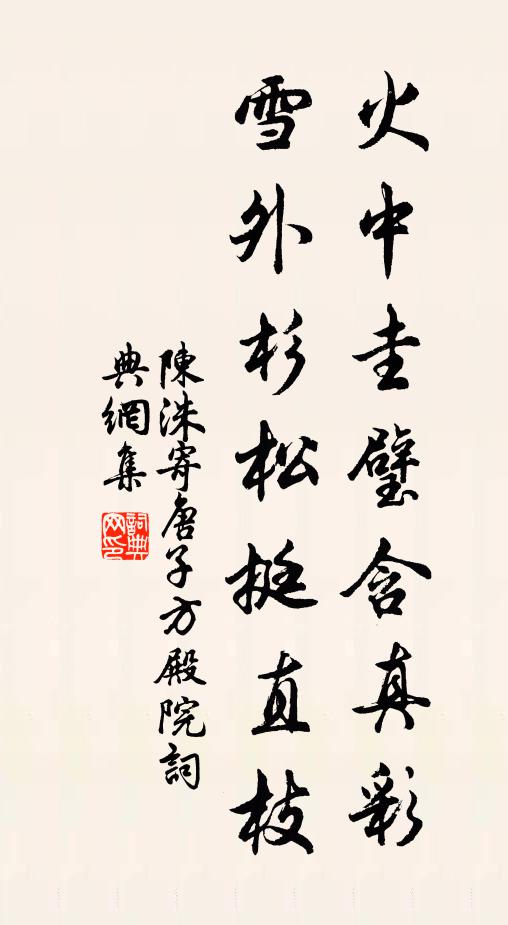 火中圭璧含真彩
雪外杉松挺直枝
陳洙寄唐子方殿院詞
典網集
詞典
网印